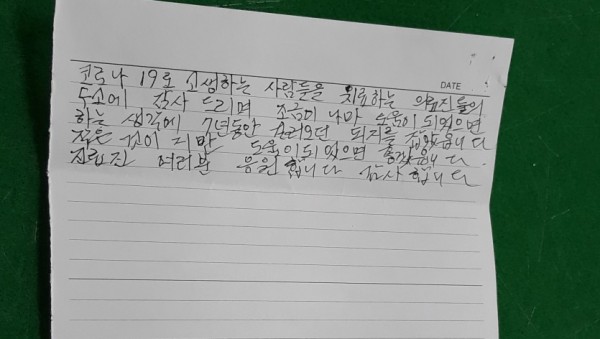 DATE
코로나 19로 고생하는 사람들을 치료하는 의료진들의
수고에 감사 드리며 조금이 나마 도움이 되었으면
하는 생각에 7년동안 돼지를 잡았읍니다
작은 것이 지만 도움이 되 었으면 좋겠습니다
의료진 여러분 응원 합니다 감사 합니다